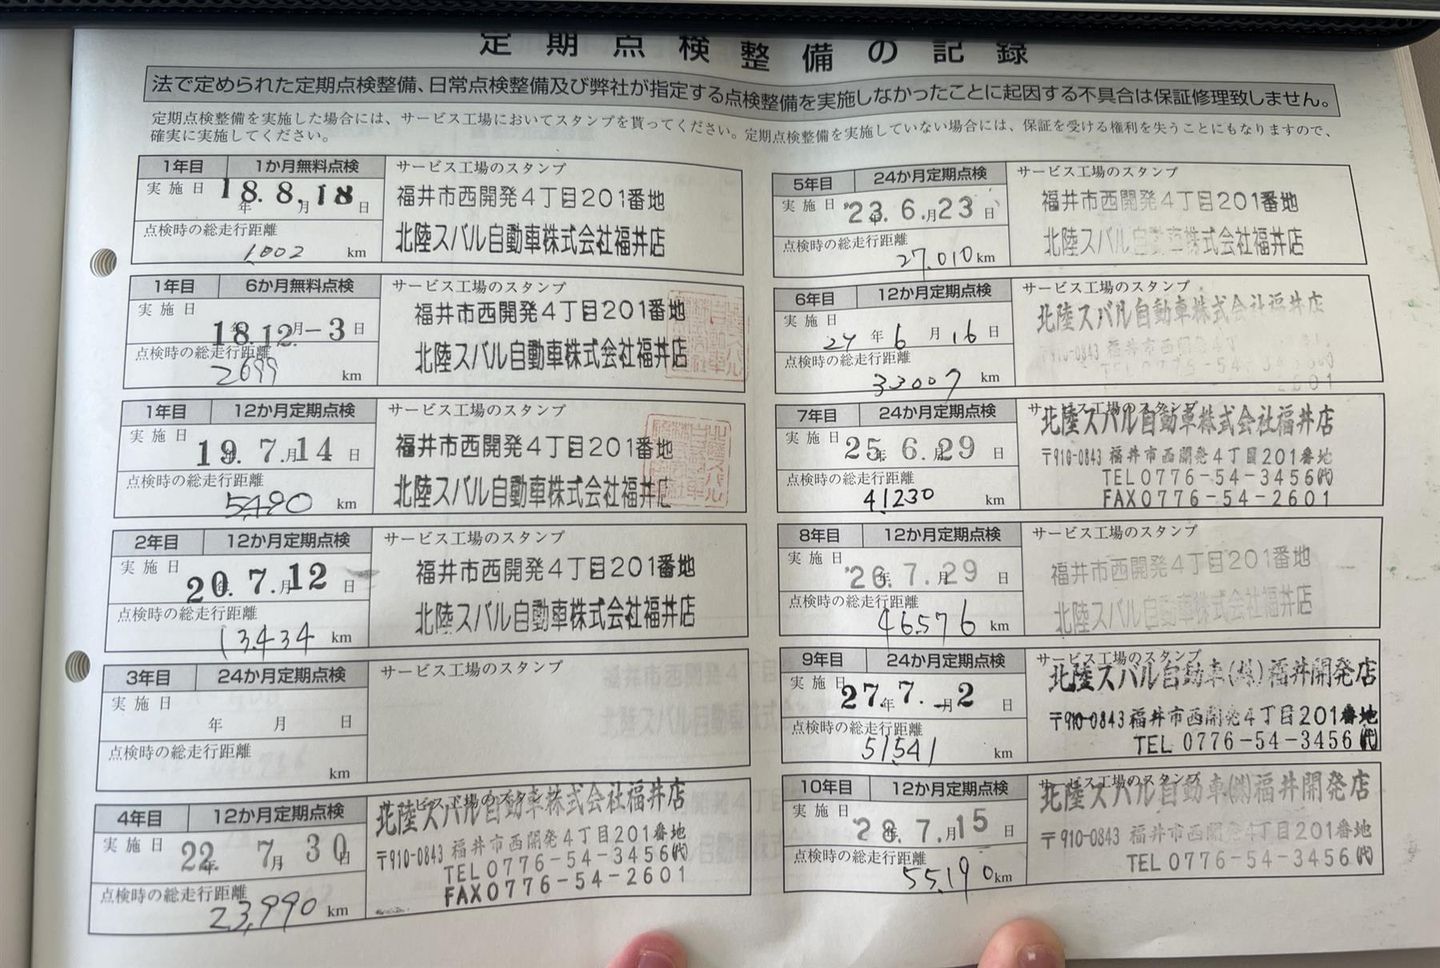 定期点検整備の記録
法で定められた定期点検整備、日常点検整備及び弊社が指定する点検整備を実施しなかったことに起因する不具合は保証修理致しません。
定期点検整備を実施した場合には、サービス工場においてスタンプを貰ってください。定期点検整備を実施していない場合には、保証を受ける権利を失うことにもなりますので、
確実に実施してください。
1年目 1か月無料点検 サービス工場のスタンプ
実施日 18.年8.月18日
福井市西開発4丁目201番地
点検時の総走行距離
1,002 km
北陸スバル自動車株式会社福井店
1年目 6か月無料点検 サービス工場のスタンプ
実施日 18.年12.月-3日
福井市西開発4丁目201番地
点検時の総走行距離
2699 km
北陸スバル自動車株式会社福井店
1年目 12か月定期点検 サービス工場のスタンプ
実施日 19.年7.月14日
福井市西開発4丁目201番地
点検時の総走行距離
5,490 km
北陸スバル自動車株式会社福井店
2年目 12か月定期点検 サービス工場のスタンプ
実施日 20.年7.月12日
福井市西開発4丁目201番地
点検時の総走行距離
13,434 km
北陸スバル自動車株式会社福井店
3年目 24か月定期点検 サービス工場のスタンプ
実施日 年 月 日
点検時の総走行距離
km
4年目 12か月定期点検 サービス工場のスタンプ
北陸スバル自動車株式会社福井店
実施日 22年 7月 30日
〒910-0843 福井市西開発4丁目201番地
TEL0776-54-3456(代)
FAX0776-54-2601
点検時の総走行距離
23,990 km
5年目 24か月定期点検 サービス工場のスタンプ
実施日 '23.年6.月23日
福井市西開発4丁目201番地
点検時の総走行距離
27,010km
北陸スバル自動車株式会社福井店
6年目 12か月定期点検 サービス工場のスタンプ
北陸スバル自動車株式会社福井店
実施日 24年6月16日
〒910-0843 福井市西開発4丁
TEL0776-54-
2601
点検時の総走行距離
33007 km
7年目 24か月定期点検 サービス工場のスタンプ
北陸スバル自動車株式会社福井店
実施日 25年6.月29日
〒910-0843 福井市西開発4丁目201番地
TEL0776-54-3456(代)
FAX0776-54-2601
点検時の総走行距離
41230 km
8年目 12か月定期点検 サービス工場のスタンプ
実施日 '26.年7.月29日
福井市西開発4丁目201番地
点検時の総走行距離
46,576 km
北陸スバル自動車株式会社福井店
9年目 24か月定期点検 サービス工場のスタンプ
北陸スバル自動車(株)福井開発店
実施日 27.年7.月-2日
〒910-0843 福井市西開発4丁目201番地
TEL 0776-54-3456(代)
点検時の総走行距離
51,541 km
10年目 12か月定期点検 サービス工場のスタンプ
北陸スバル自動車(株)福井開発店
実施日 '28.年7.月15日
〒910-0843 福井市西開発4丁目201番地
TEL0776-54-3456(代)
点検時の総走行距離
55,190km